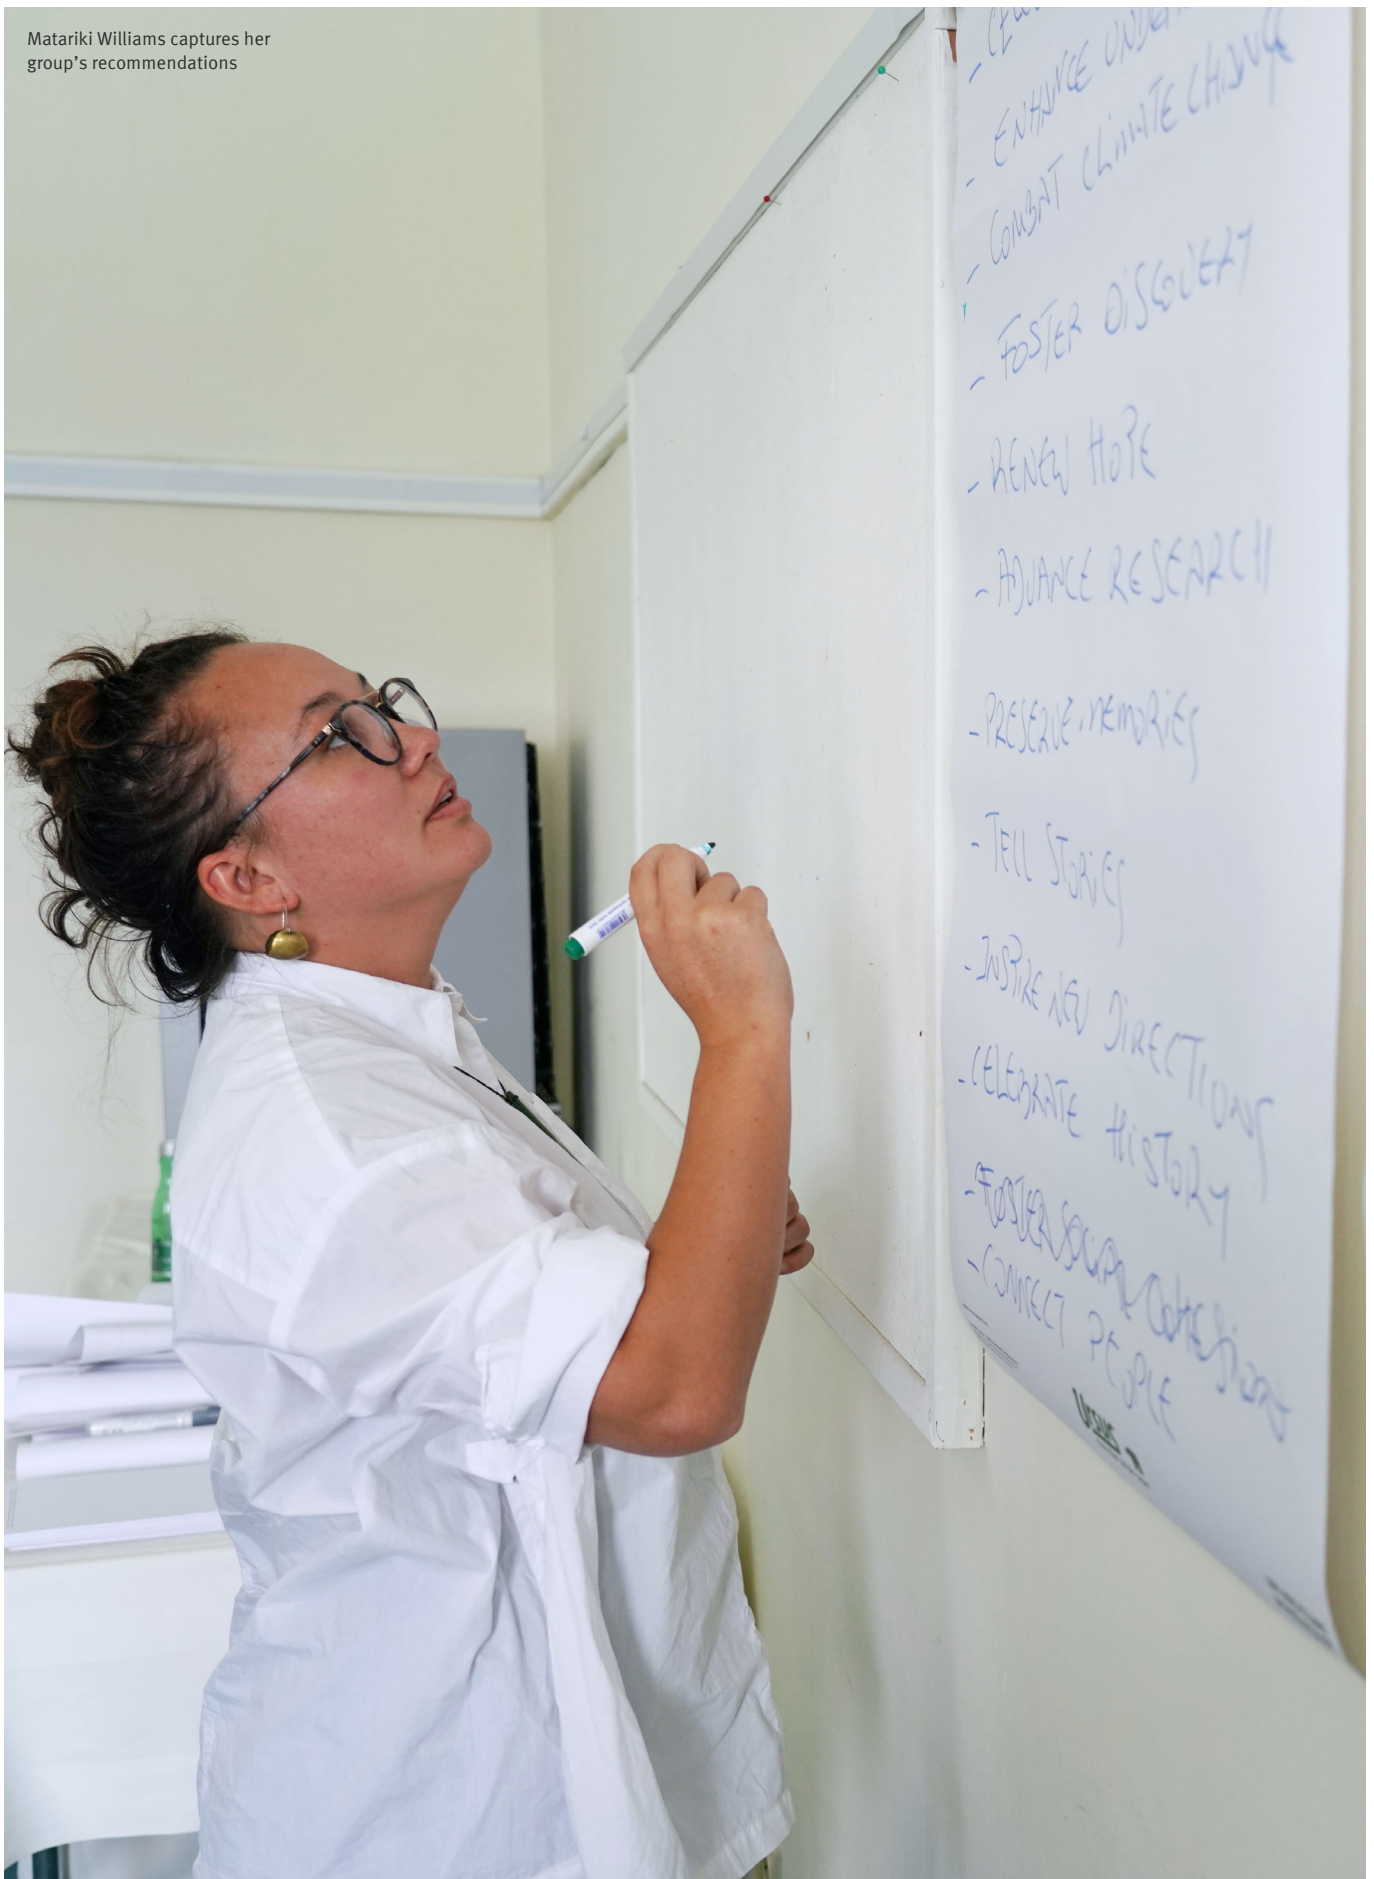 Matariki Williams captures her
group's recommendations
- ENHANCE
- COMBAT CLIMATE CHANGE
- FOSTER DISCOVERY
- RENEW HOPE
- ADVANCE RESEARCH
- PRESERVE MEMORIES
- TELL STORIES
- INSPIRE NEW DIRECTIONS
- CELEBRATE HISTORY
- FOSTER SOCIAL COHESION
- CONNECT PEOPLE
URSUS